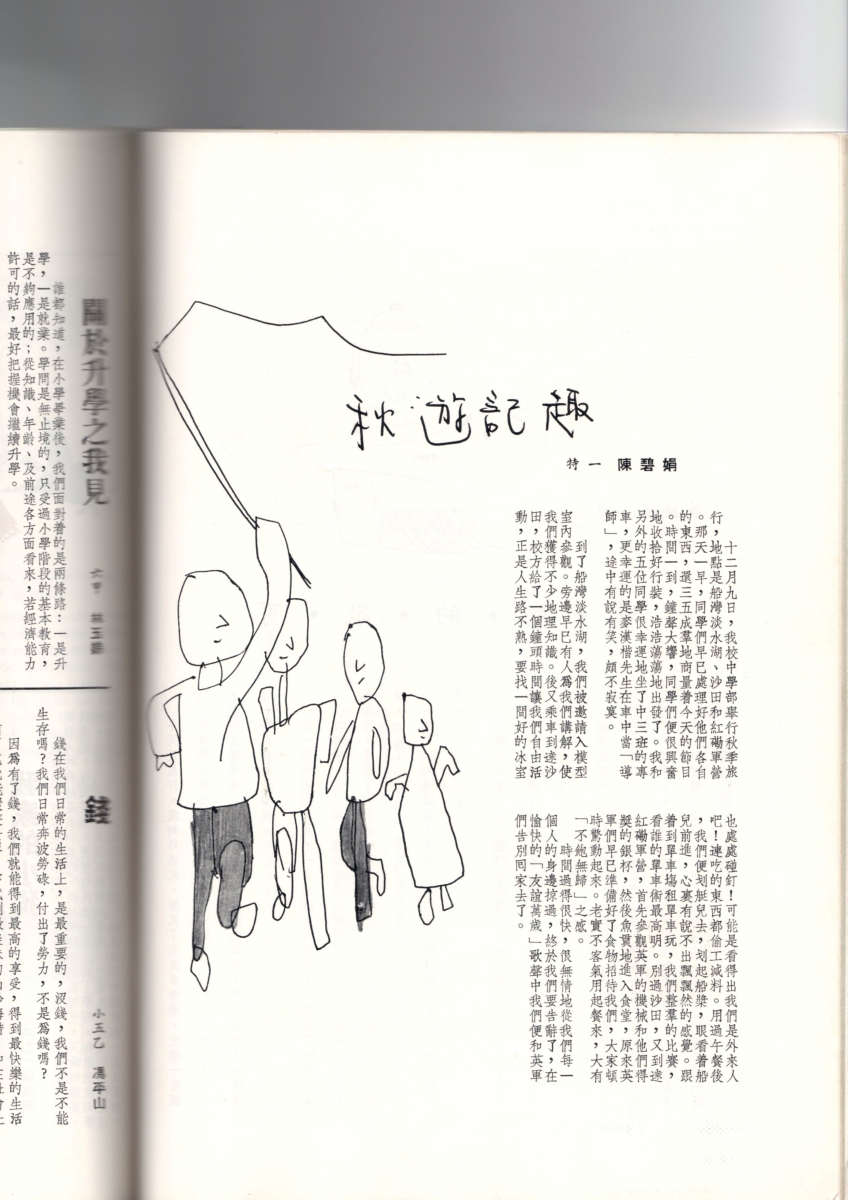 秋遊記趣
特一 陳碧娟
十二月九日，我校中學部舉行秋季旅
行，地點是船灣淡水湖、沙田和紅磡軍營
。那天一早，同學們早已處理好他們各自
的東西，還三五成羣地商量着今天的節目
。時間一到，鐘聲大響，同學們便很興奮
地收拾好行裝，浩浩蕩蕩地出發了。我和
另外的五位同學很幸運地坐了中三班的專
車，更幸運的是麥漢楷先生在車中當「導
師」，途中有說有笑，頗不寂寞。
到了船灣淡水湖，我們被邀請入模型
室內參觀。旁邊早已有人爲我們講解，使
我們獲得不少地理知識。後又乘車到達沙
田，校方給了一個鐘頭時間讓我們自由活
動，正是人生路不熟，要找一間好的冰室
也處處碰釘！可能是看得出我們是外來人
吧！連吃的東西都偷工減料。用過午餐後
，我們便划艇兒去，划起船槳，眼看着船
兒前進，心裏有說不出飄飄然的感覺。跟
着到單車塲租單車玩，我們整羣的比賽，
看誰的單車術最高明。別過沙田，又到達
紅磡軍營，首先參觀英軍的機械和他們得
獎的銀杯，然後魚貫地進入食堂，原來英
軍們早已準備好了食物招待我們，大家頓
時驚動起來。老實不客氣用起餐來，大有
「不飽無歸」之感。
時間過得很快，很無情地從我們每一
個人的身邊掠過，終於我們要告辭了，在
愉快的「友誼萬歲」歌聲中我們便和英軍
們告別囘家去了。
關於升學之我見
六甲 林玉
誰都知道，在小學畢業後，我們面對着的是兩條路：一是升
學，一是就業。學問是無止境的，只受過小學階段的基本教育，
是不夠應用的；從知識、年齡、及前途各方面看來，若經濟能力
許可的話，最好把握機會繼續升學。
錢
小五乙 馮平山
錢在我們日常的生活上，是最重要的，沒錢，我們不是不能
生存嗎？我們日常奔波勞碌，付出了勞力，不是爲錢嗎？
因爲有了錢，我們就能得到最高的享受，得到最快樂的生活